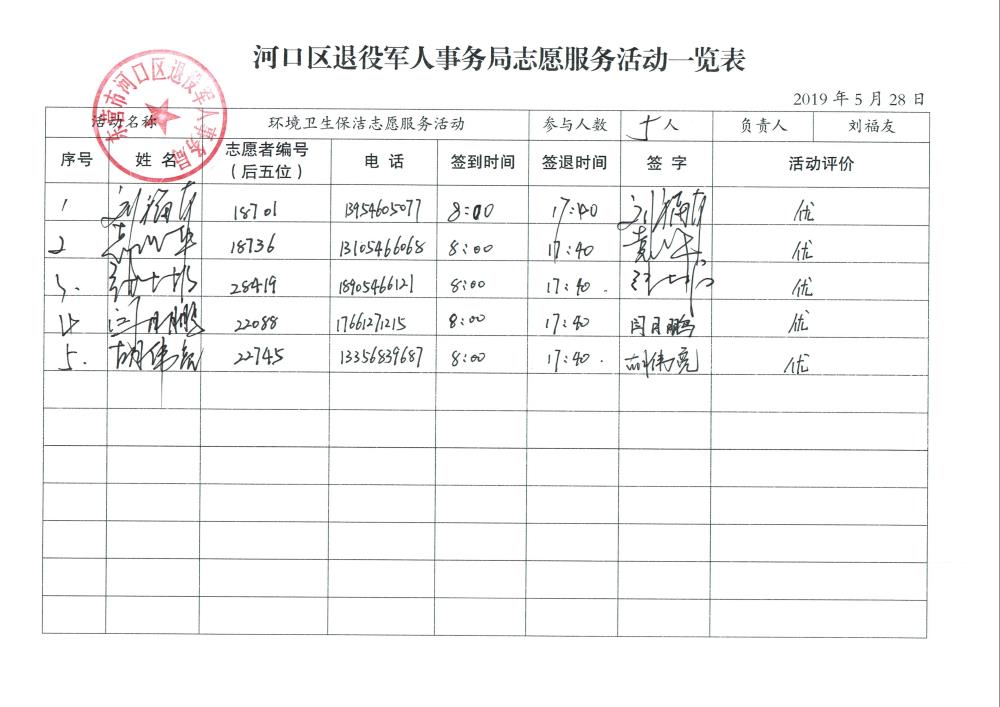 河口区退役军人事务局志愿服务活动一览表
东营市河口区退役军人事务局
2019 年 5 月 28 日
活动名称 环境卫生保洁志愿服务活动 参与人数 5 人 负责人 刘福友
序号 姓 名 志愿者编号（后五位） 电 话 签到时间 签退时间 签 字 活动评价
1 刘福友 18701 13954605077 8:00 17:40 刘福友 优
2 18736 13105466068 8:00 17:40 优
3. 28419 18905466121 8:00 17:40. 优
4 闫月鹏 22088 17661271215 8:00 17:40 闫月鹏 优
5. 胡伟亮 22745 13356839687 8:00 17:40. 胡伟亮 优